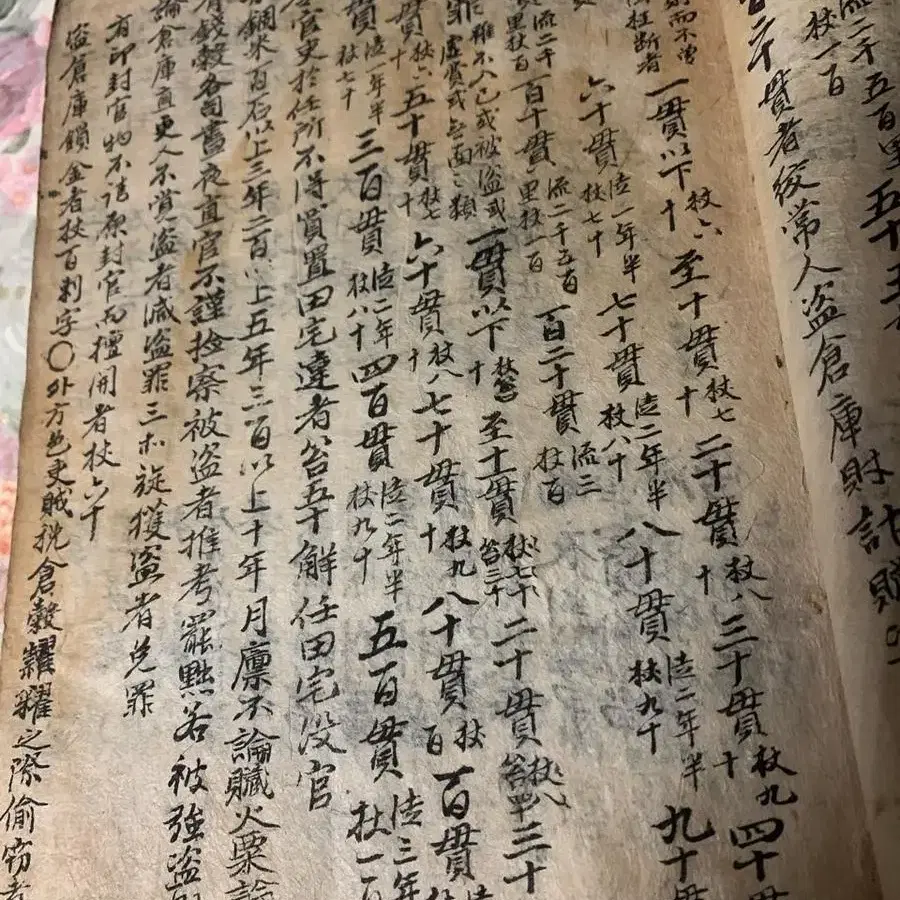 流二千五百里杖一百 五十五
百二十貫者絞常人盜倉庫財計贓
則而不曾枉断者 一貫以下杖六十至十貫杖七十二十貫杖八十三十貫杖九十四十貫
六十貫徒一年半杖七十七十貫徒二年半杖八十八十貫徒二年半杖九十九十貫
流二千里杖百百十貫流二千五百里杖一百百二十貫流三杖百
罪雖不入己或被盜或一貫以下至十貫杖七十笞三十二十貫三十
貫杖六十五十貫杖七十六十貫杖八十七十貫杖九十八十貫杖百百貫
貫徒一年半杖七十三百貫徒二年杖八十四百貫徒二年半杖九十五百貫徒三年杖一百
官吏於任所不得買置田宅違者笞五十解任田宅沒官
銅米百石以上三年二百以上五年三百以上十年月廩不論贓火粟論
有錢穀各司晝夜直官不謹捡察被盜者推考罷黜若被強盜
論倉庫直更人不覺盜者減盜罪三木旋獲盜者免罪
有印封官物不請原封官而擅開者杖六十
盜倉庫鎖金者杖百刺字〇外方色吏贓挽倉穀糶糴之際偷窃者